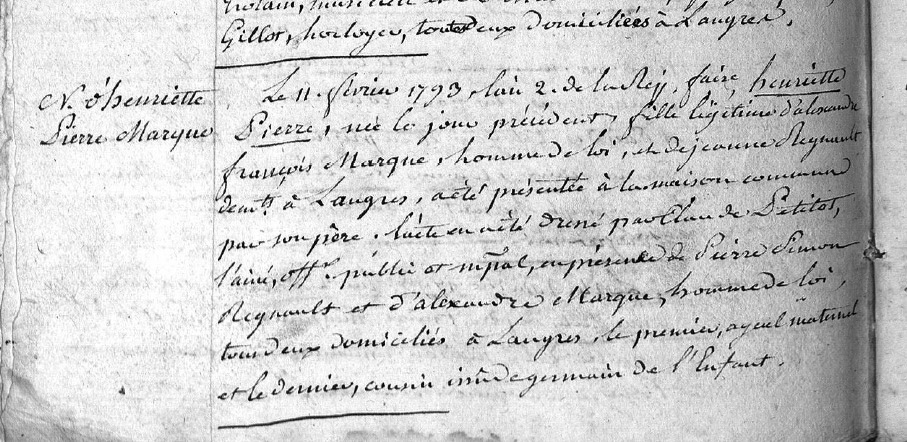 musicien et
Gillot, horloger, tous deux domiciliés à Langres.
N. d'henriette
Pierre Marque
Le 11. février 1793, l'an 2. de la Rép. henriette
Pierre, née le jour précédent, fille légitime d'alexandre
françois Marque, homme de loi, et de jeanne Regnault
demts. à Langres, a été présentée à la maison commune
par son père. l'acte en a été dressé par Claude Petitot,
l'ainé, offr. public et mpal, en présence de Pierre Simon
Regnault et d'alexandre Marque, homme de loi,
tous deux domiciliés à Langres, le premier, ayeul maternel
et le dernier, cousin issu de germain de l'Enfant.